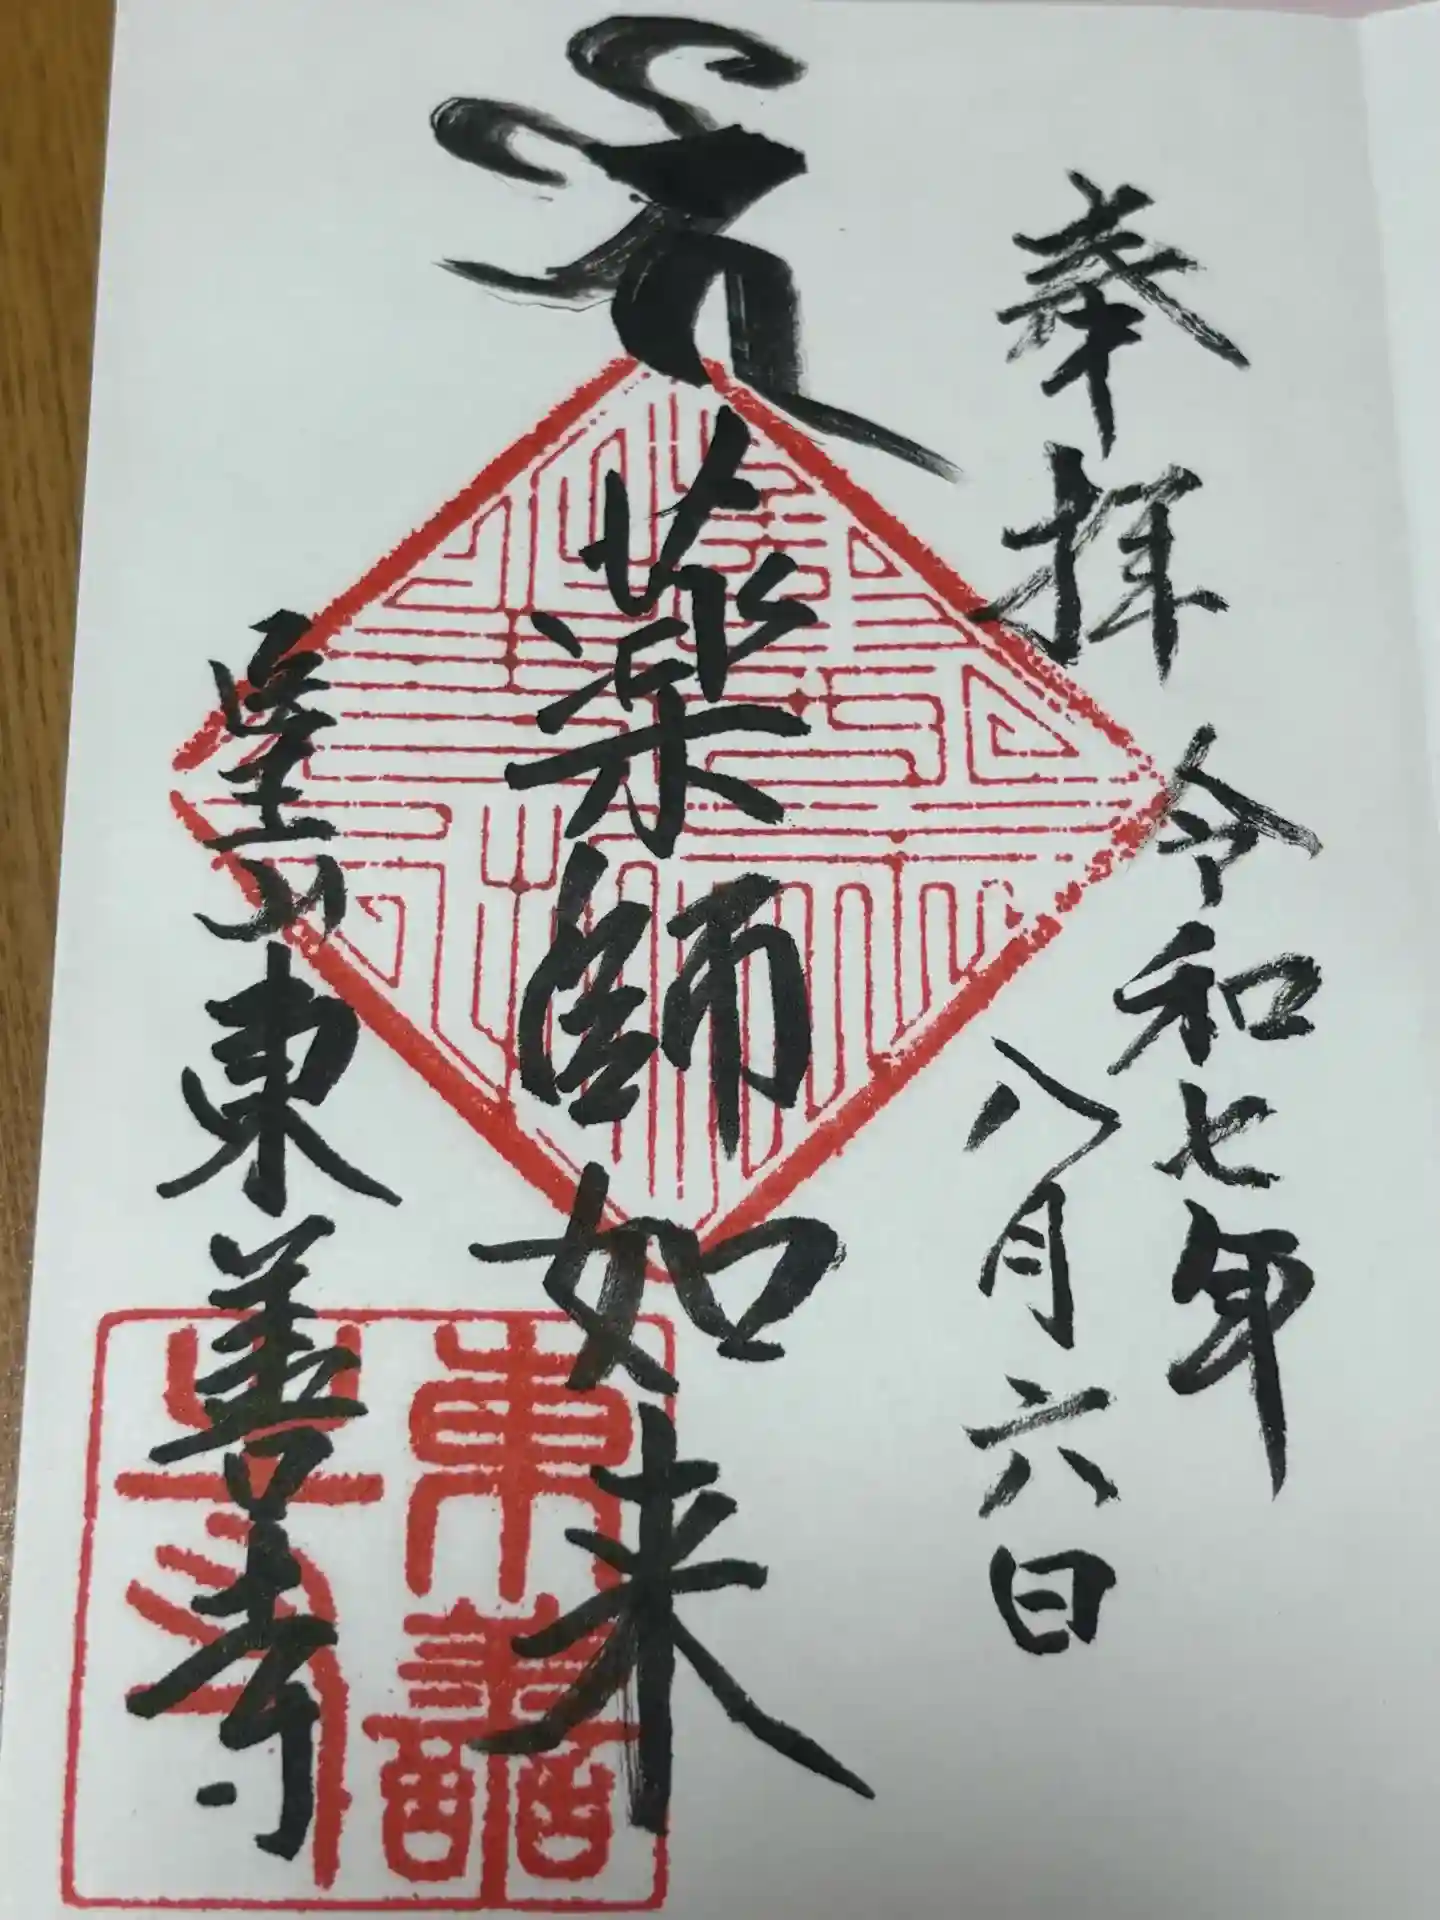 奉拝
令和七年
八月六日
薬師如来
医王山東善寺
東譱寺